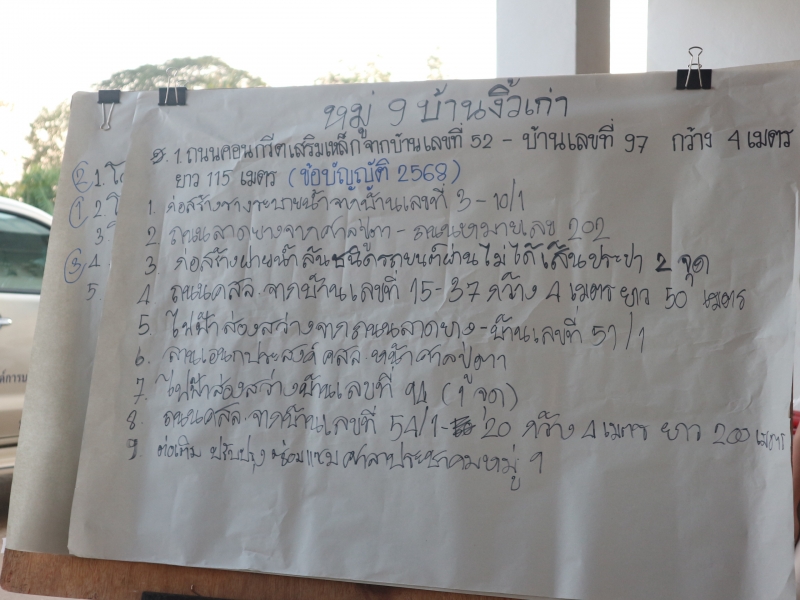 หมู่ 9 บ้านงิ้วเก่า
ด.1 ถนนคอนกรีตเสริมเหล็กจากบ้านเลขที่ 52 - บ้านเลขที่ 97 กว้าง 4 เมตร
ยาว 115 เมตร (ข้อบัญญัติ 2568)
1. ก่อสร้างรางระบายน้ำจากบ้านเลขที่ 3-10/1
2 ถนนลาดยางจากศาลปู่ตา - ถนนหมายเลข 202
3. ก่อสร้างฝายน้ำล้นชนิดรถยนต์ผ่านไม่ได้ เส้นประปา 2 จุด
4. ถนนคสล. จากบ้านเลขที่ 15-37 กว้าง 4 เมตร ยาว 50 เมตร
5. ไฟฟ้าส่องสว่างจากถนนลาดยาง-บ้านเลขที่ 51/1
6. ลานเอนกประสงค์ คสล. หน้าศาลปู่ตา
7. ไฟฟ้าส่องสว่างบ้านเลขที่ 94 (1 จุด)
8. ถนนคสล. จากบ้านเลขที่ 54/1- 20 กว้าง 4 เมตร ยาว 200 เมตร
9 ต่อเติม ปรับปรุง ซ่อมแซม ศาลาประชาคมหมู่ 9
② 1.
① 2.
3.
③ 4.
5.